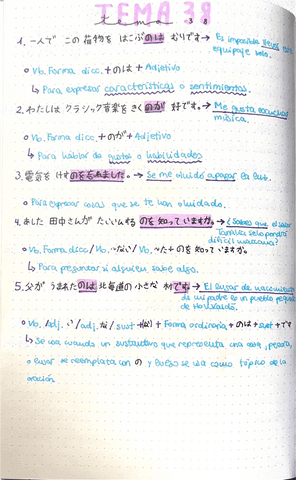 TEMA 38
tema 38
1. 一人で この荷物を はこぶのは むりです→ Es imposible llevar este
equipaje solo.
○ Vb. Forma dicc. + のは + Adjetivo
↳ Para expresar características o sentimientos.
2. わたしは クラシック音楽を きくのが 好です。→ Me gusta escuchar
música.
○ Vb. Forma dicc. + のが + Adjetivo
↳ Para hablar de gustos o habilidades
3. 電気を けすのを忘れました。→ Se me olvidó apagar la luz.
↳ Para expresar cosas que se te han olvidado.
4. あした 田中さんが たいいんする のを 知って いますか。→ ¿Sabes que el señor
Tanaka
○ Vb. Forma dicc / Vb. ~ない / Vb. ~た + のを 知って いますか.
↳ Para preguntar si alguien sabe algo.
5. 父が うまれたのは 北海道の 小さな 村です → El lugar de nacimiento
de mi padre es un pueblo pequeño
de Hokkaido.
○ Vb. /Adj. い / adj. な / sust + Forma ordinaria + のは + sust + です
↳ Se usa cuando un sustantivo que representa una cosa, persona,
o lugar se reemplaza con の y luego se usa como tópico de la
oración.